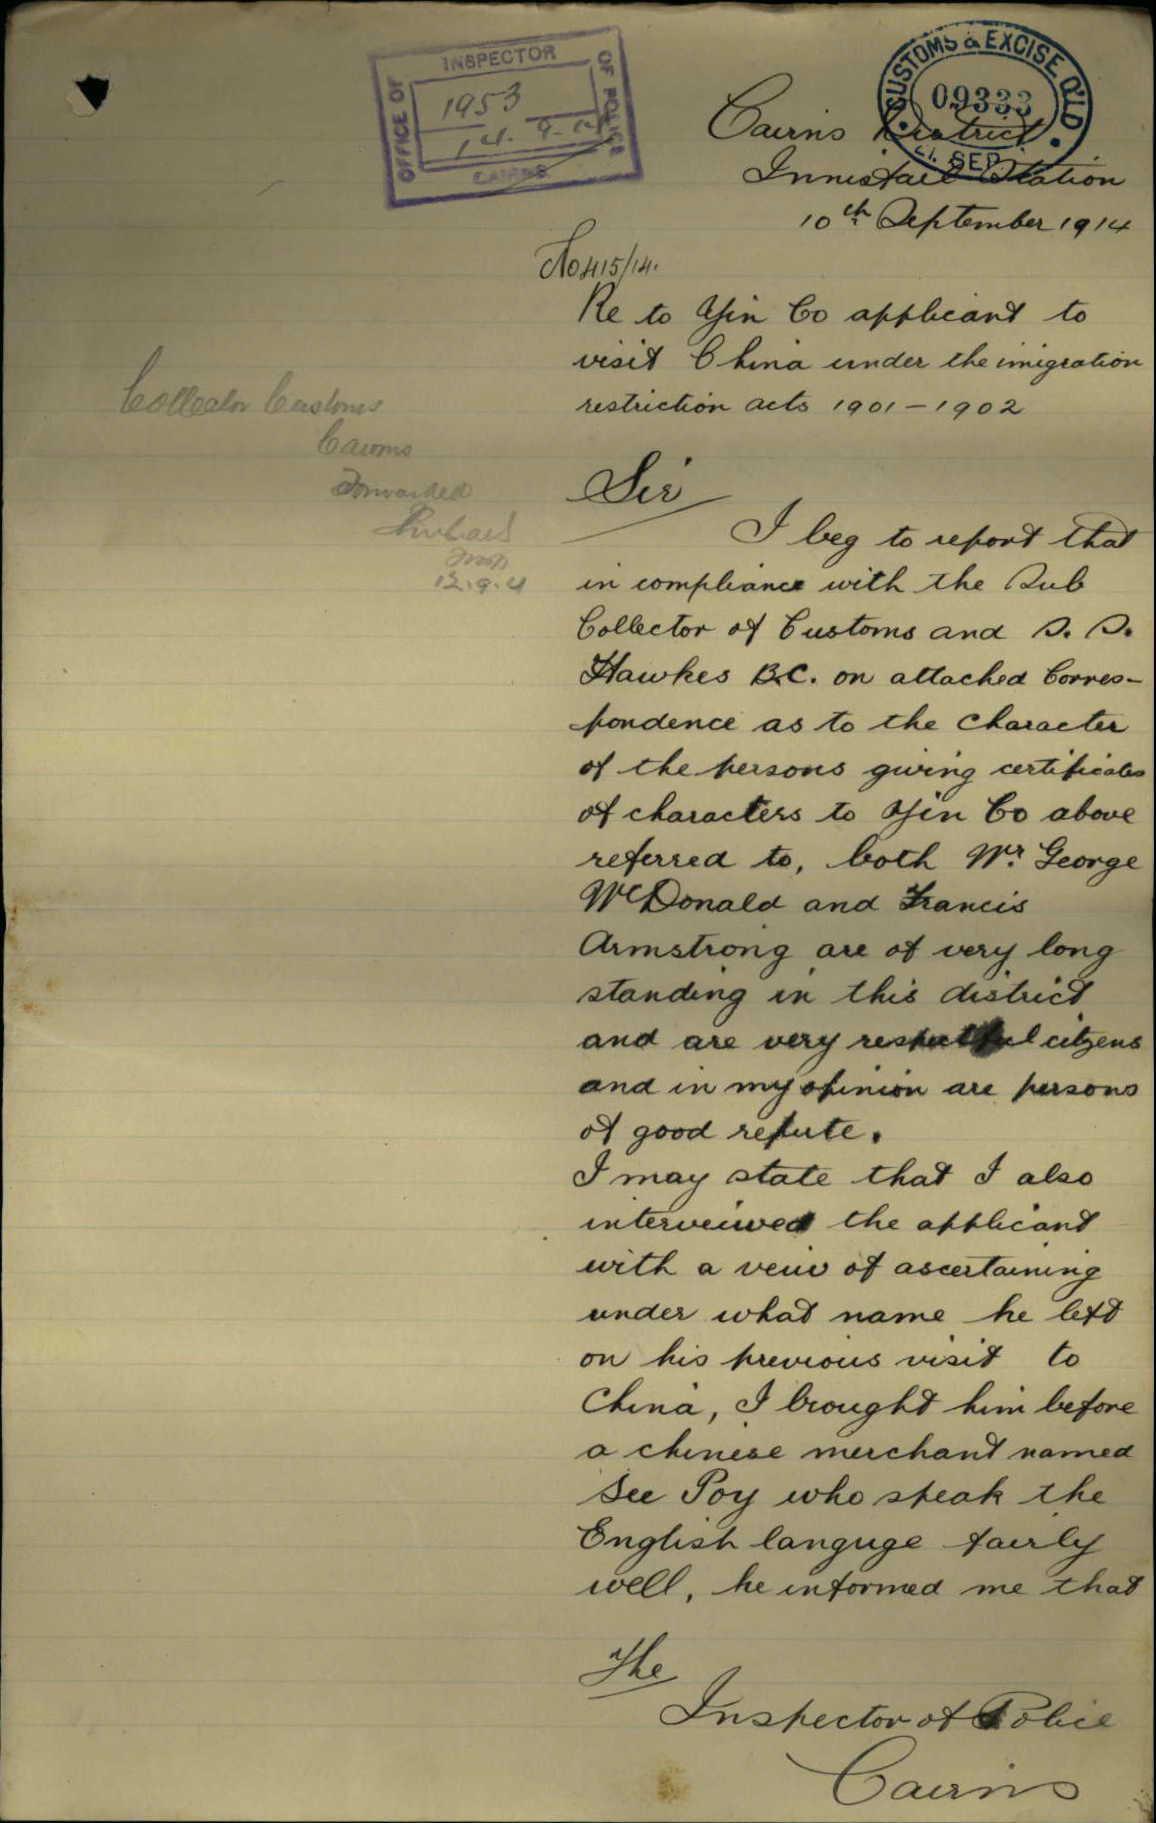 OFFICE OF INSPECTOR OF POLICE
1953
14. 9. 14
CAIRNS
CUSTOMS & EXCISE QLD.
09333
21. SEP.
Cairns District
Innisfail Station
10th September 1914
No 415/14.
Re to Yin Co applicant to
visit China under the imigration
restriction acts 1901-1902
Collector Customs
Cairns
Forwarded
Sir
I beg to report that
in compliance with the Sub
Collector of Customs and S. S.
Hawkes B.C. on attached Corres-
pondence as to the Character
of the persons giving certificates
of characters to Yin Co above
referred to, both Mr. George
McDonald and Francis
Armstrong are of very long
standing in this district
and are very respectful citzens
and in my opinion are persons
of good repute.
I may state that I also
interveiwed the applicant
with a veiw of ascertaining
under what name he left
on his previous visit to
China, I brought him before
a chinese merchant named
See Poy who speak the
English languge fairly
well, he informed me that
The
Inspector of Police
Cairns